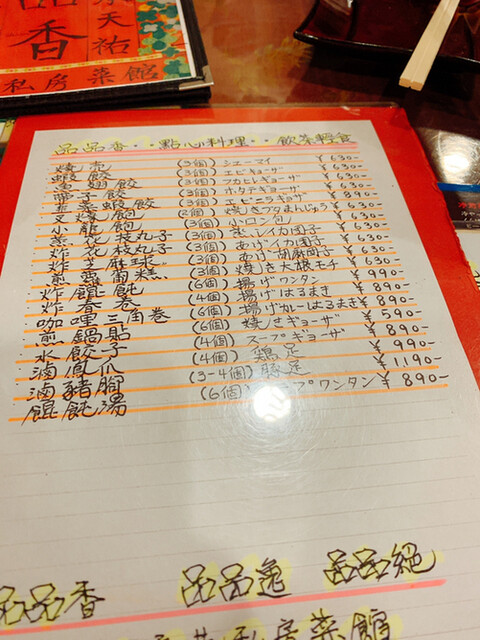 品香
永天祐
私房菜館
品品香・・點心料理・・飲茶軽食
燒売 (3個) シューマイ ¥630-
蝦餃 (3個) エビギョーザ ¥630-
魚翅餃 (3個) フカヒレギョーザ ¥630-
帶子餃 (3個) ホタテギョーザ ¥890-
韮菜蝦餃 (3個) エビニラギョーザ ¥630-
叉燒飽 (2個) 焼きブタまんじゅう ¥630-
小龍飽 (3個) 小籠包 ¥630-
蒸花枝丸子 (3個) むしイカ団子 ¥630-
炸花枝丸子 (3個) あげイカ団子 ¥630-
炸芝麻球 (3個) あげ胡麻団子 ¥630-
煎蘿蔔糕 (3個) 焼き大根モチ ¥630-
炸餛飩 (6個) 揚げワンタン ¥990-
炸春卷 (4個) 揚げはるまき ¥890-
咖哩三角巻 (6個) 揚げカレーはるまき ¥890-
煎鍋貼 (6個) 焼きギョーザ ¥590-
水餃子 (4個) スープギョーザ ¥890-
滷鳳爪 (4個) 鶏足 ¥990-
滷豬腳 (3-4個) 豚足 ¥1190-
餛飩湯 (6個) スープワンタン ¥890-
品品香 品品逸 品品絕
私房菜館